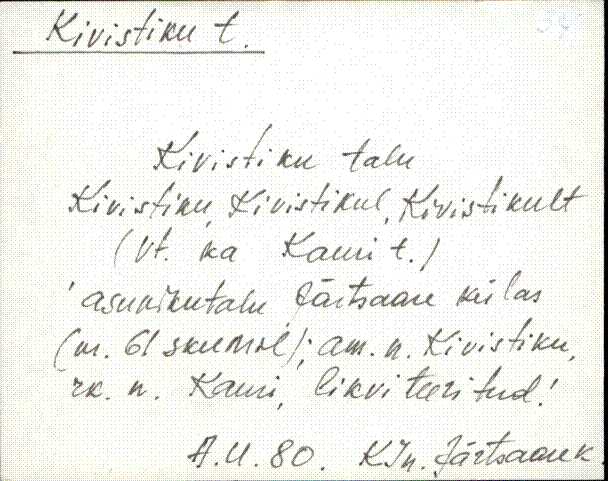 Kivistiku t.
Kivistiku talu
Kivistiku, Kivistikul, Kivistikult
(vt. ka Kauri t.)
'asunikutalu Järtsaare külas
(nr. 61 skeemil); am. n. Kivistiku,
rk. n. Kauri, likviteeritud.'
A.U. 80. KJn. Järtsaare k.